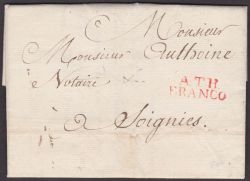 A Monsieur
Monsieur Authoine
Notaire
ATH
FRANCO
a Soignies.